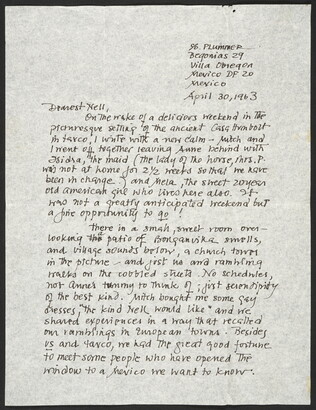 % Plummer
Begonias 29
Villa Obregon
Mexico DF 20
Mexico
April 30, 1963
Dearest Nell,
On the wake of a delicious weekend in the
picturesque setting of the ancient Casa Humboldt
in Taxco, I write with a new calm - Mitch and
I went off together leaving Anne behind with
Isidra, the maid (the lady of the house, Mrs. P.
was not at home for 2½ weeks so that we have
been in charge) and Mela, the sweet 20 year
old American girl who lives here also. It
was not a greatly anticipated weekend but
a fine opportunity to go!
There in a small, sweet room over-
looking the patio of bouganvilia smells,
and village sounds below, a church tower
in the picture - and just us and rambling
walks on the cobbled streets. No schedules,
nor Anne's tummy to think of; just serendipity
of the best kind. Mitch bought me some gay
dresses, "the kind Nell would like" and we
shared experiences in a way that recalled
our ramblings in European towns. Besides
us and Taxco, we had the great good fortune
to meet some people who have opened the
window to a Mexico we want to know.